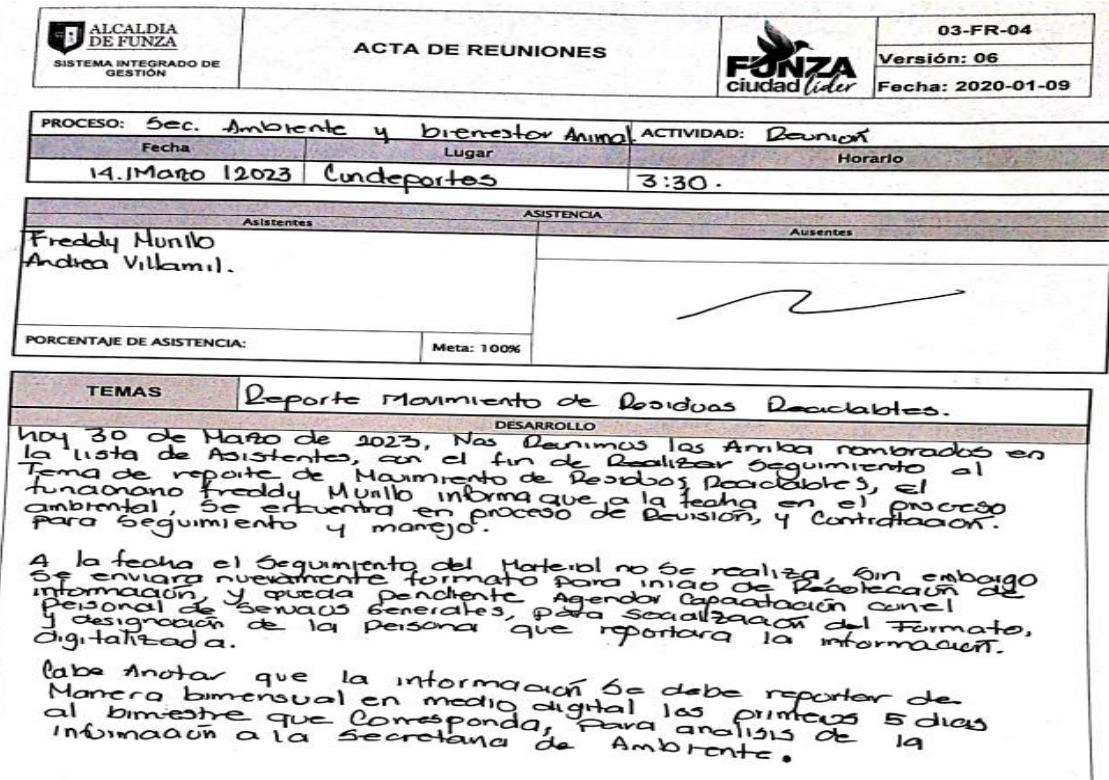 ALCALDIA
DE FUNZA
SISTEMA INTEGRADO DE
GESTIÓN
ACTA DE REUNIONES
FUNZA
ciudad líder
03-FR-04
Versión: 06
Fecha: 2020-01-09
PROCESO: Sec. Ambiente y bienestar Animal ACTIVIDAD: Reunión
Fecha Lugar Horario
14.|Marzo|2023 Cundeportes 3:30.
ASISTENCIA
Asistentes Ausentes
Freddy Murillo
Andrea Villamil.
PORCENTAJE DE ASISTENCIA: Meta: 100%
TEMAS Reporte Movimiento de Residuos Reciclables.
DESARROLLO
hoy 30 de Marzo de 2023, Nos Reunimos los Arriba nombrados en
la lista de Asistentes, con el fin de Realizar Seguimiento al
Tema de reporte de Movimiento de Residuos Reciclables, el
funcionario freddy Murillo informa que a la fecha en el proceso
ambiental, Se encuentra en proceso de Revisión, y Contratación.
para Seguimiento y manejo.
A la fecha el Seguimiento del Material no Se realiza, Sin embargo
Se enviara nuevamente formato para inicio de Recolección de
información, y queda pendiente Agendar Capacitación con el
personal de Servicios Generales, para Socialización del Formato,
y designación de la persona que reportara la información.
digitalizada.
Cabe Anotar que la información Se debe reportar de
Manera bimensual en medio digital los primeros 5 dias
al bimestre que Corresponda, para analisis de la
información a la Secretaria de Ambiente.